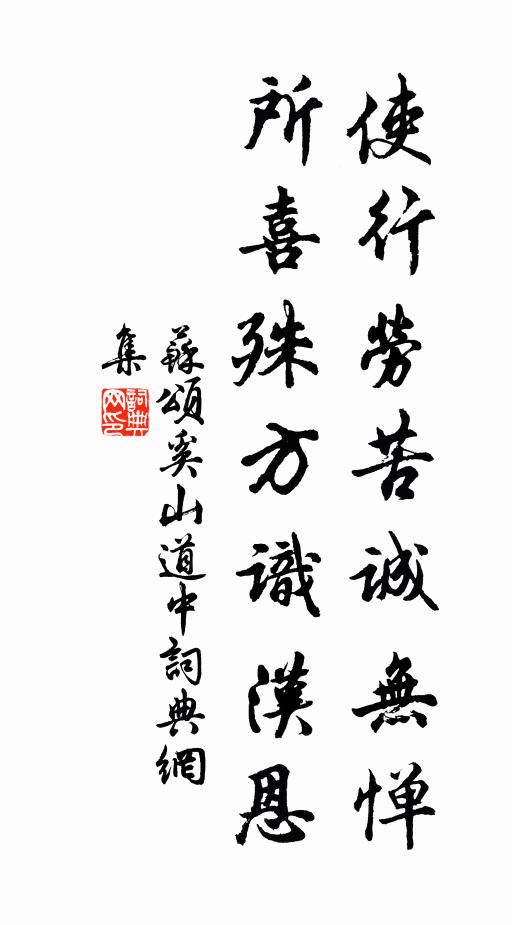 使行勞苦誠無惮
所喜殊方識漢恩
蘇頌奚山道中詞典網
集
詞典网印